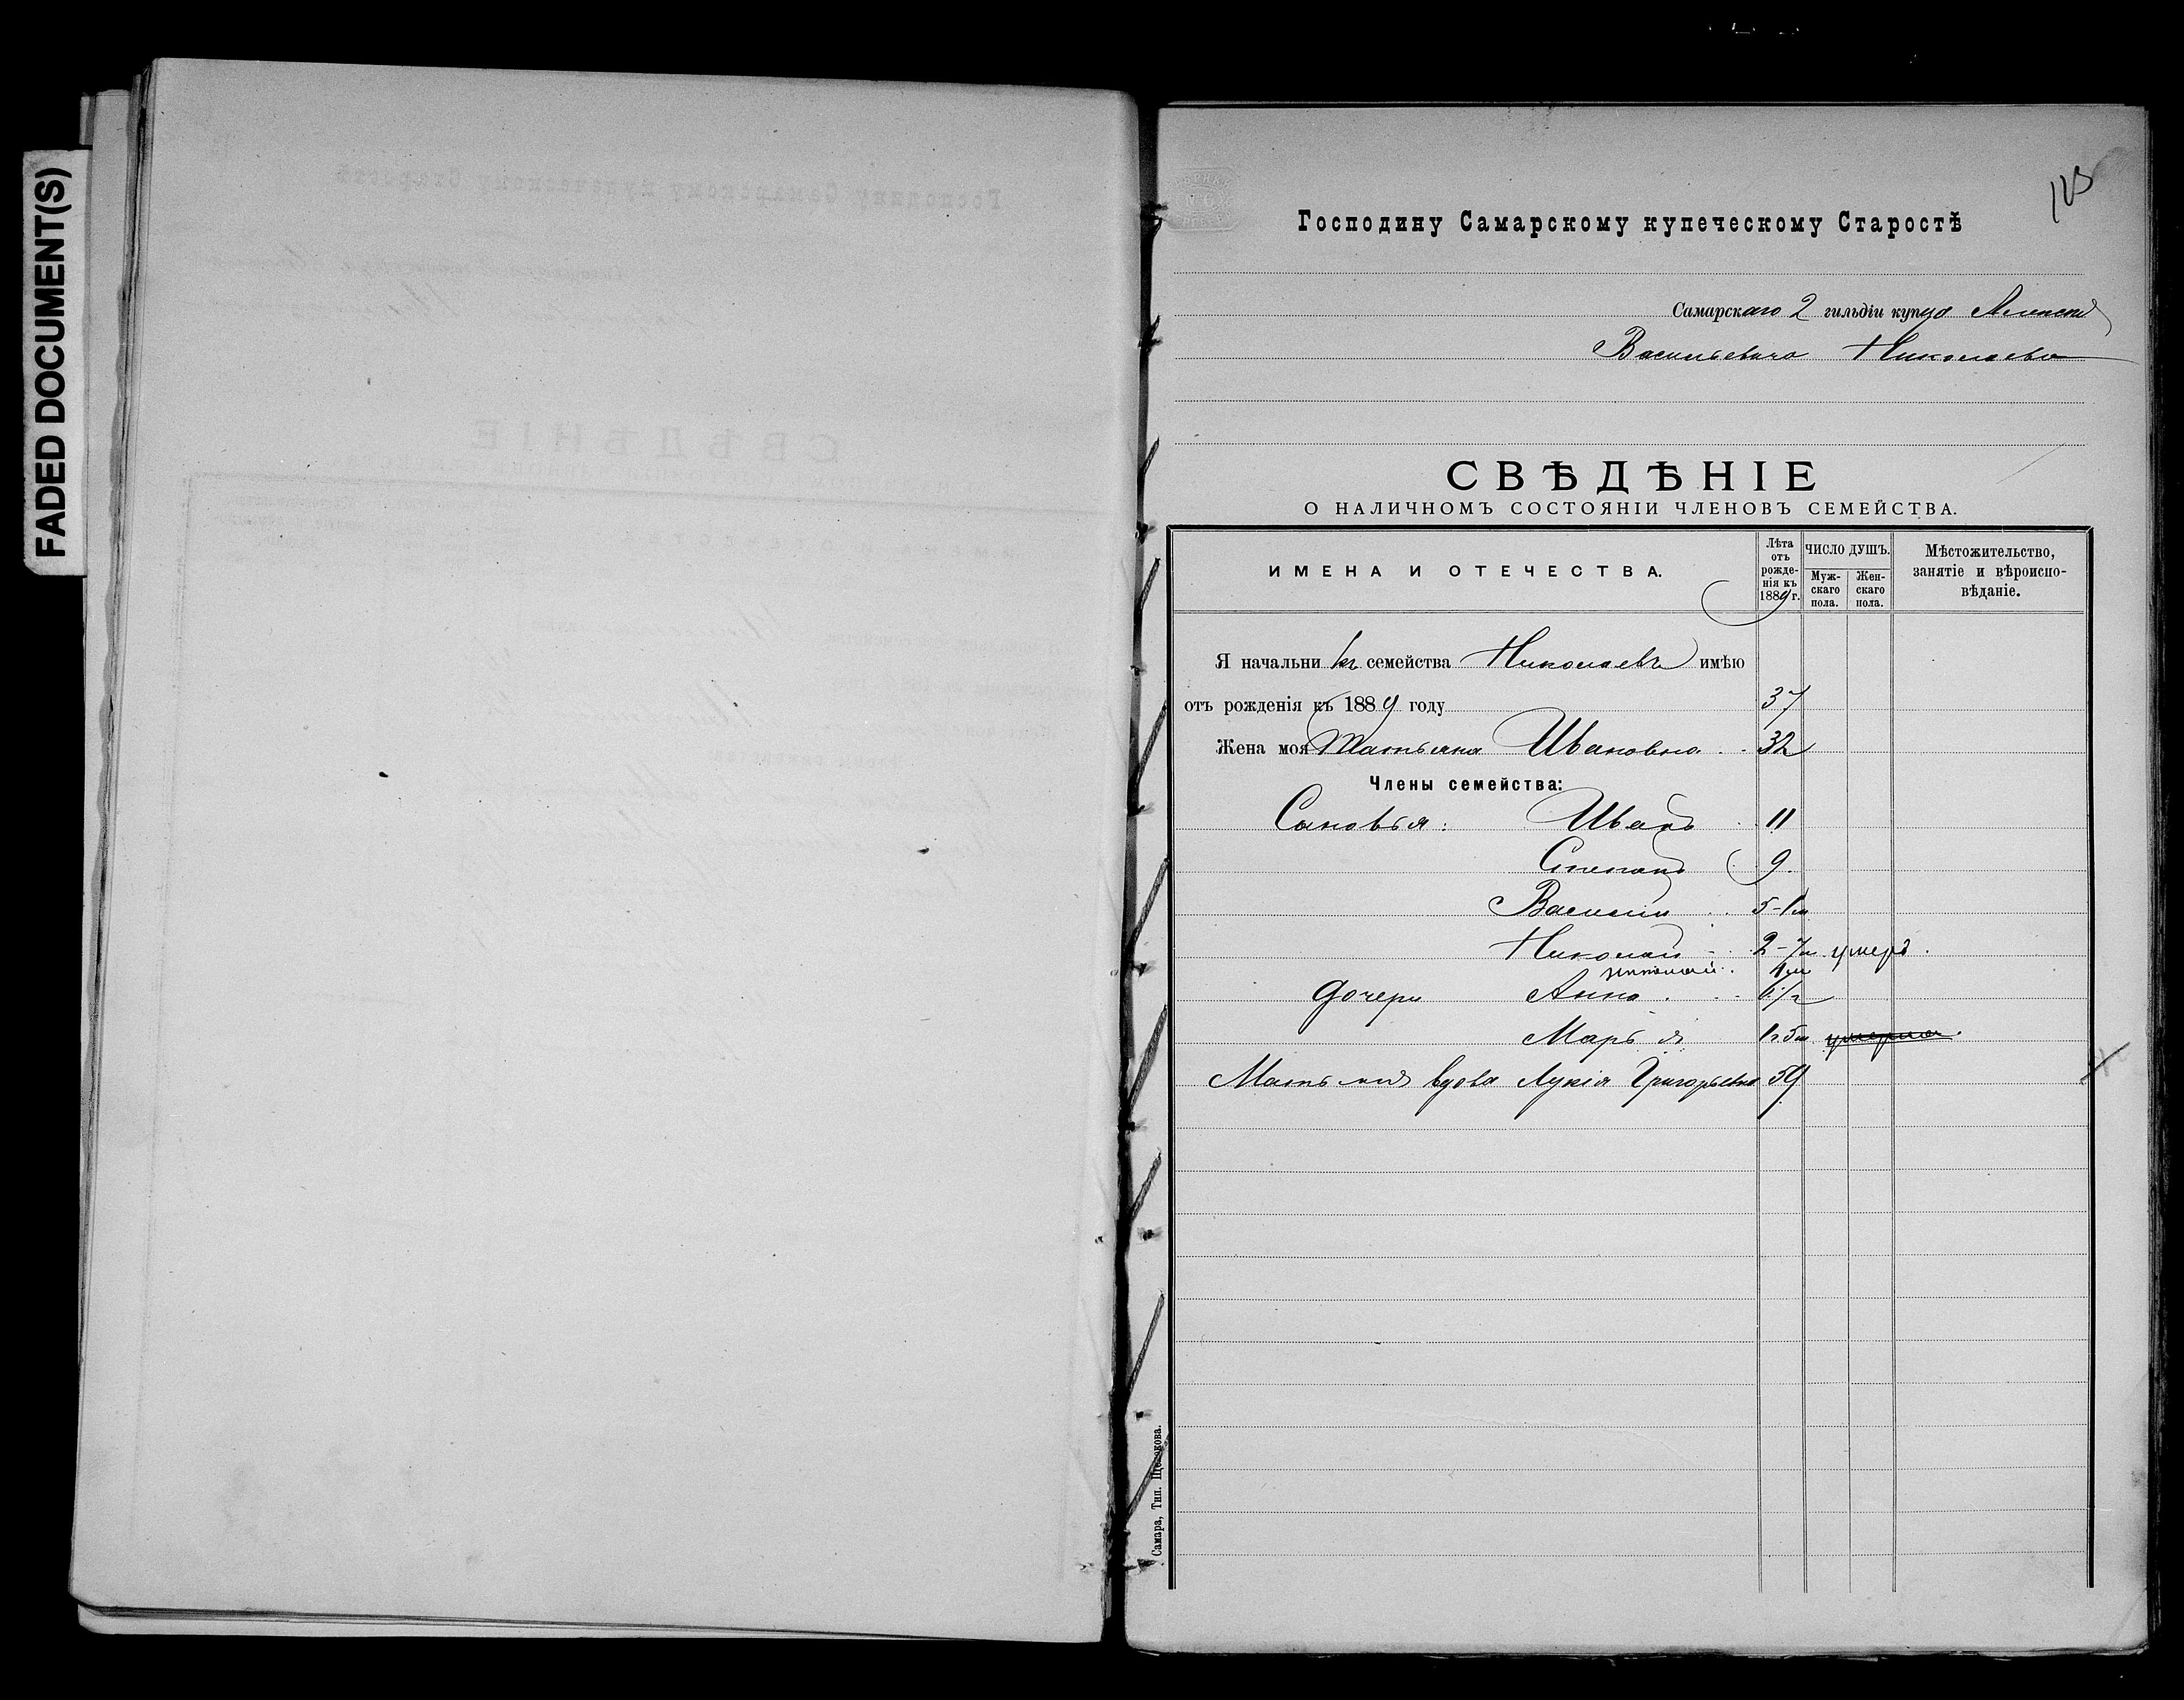 FADED DOCUMENT(S)
Господину Самарскому купеческому Старостѣ
Самарскаго 2 гильдіи купца Алексѣя
Васильевича Николаева
СВѢДѢНІЕ
О НАЛИЧНОМЪ СОСТОЯНІИ ЧЛЕНОВЪ СЕМЕЙСТВА.
ИМЕНА И ОТЕЧЕСТВА.
Лѣта отъ рожденія къ 1889 г.
ЧИСЛО ДУШЪ.
Мужскаго пола.
Женскаго пола.
Мѣстожительство, занятіе и вѣроисповѣданіе.
Я начальникъ семейства Николаевъ имѣю
отъ рожденія къ 1889 году 37
Жена моя Татьяна Ивановна 32
Члены семейства:
Сыновья: Иванъ 11
Степанъ 9
Василій 5-1м
Николай 2-7м умеръ
Николай 1м
Дочери Анна 6 1/2
Марья 1г 5м умерла
Мать моя вдова Лукія Григорьевна 59
Самара, Тип. Щелокова.